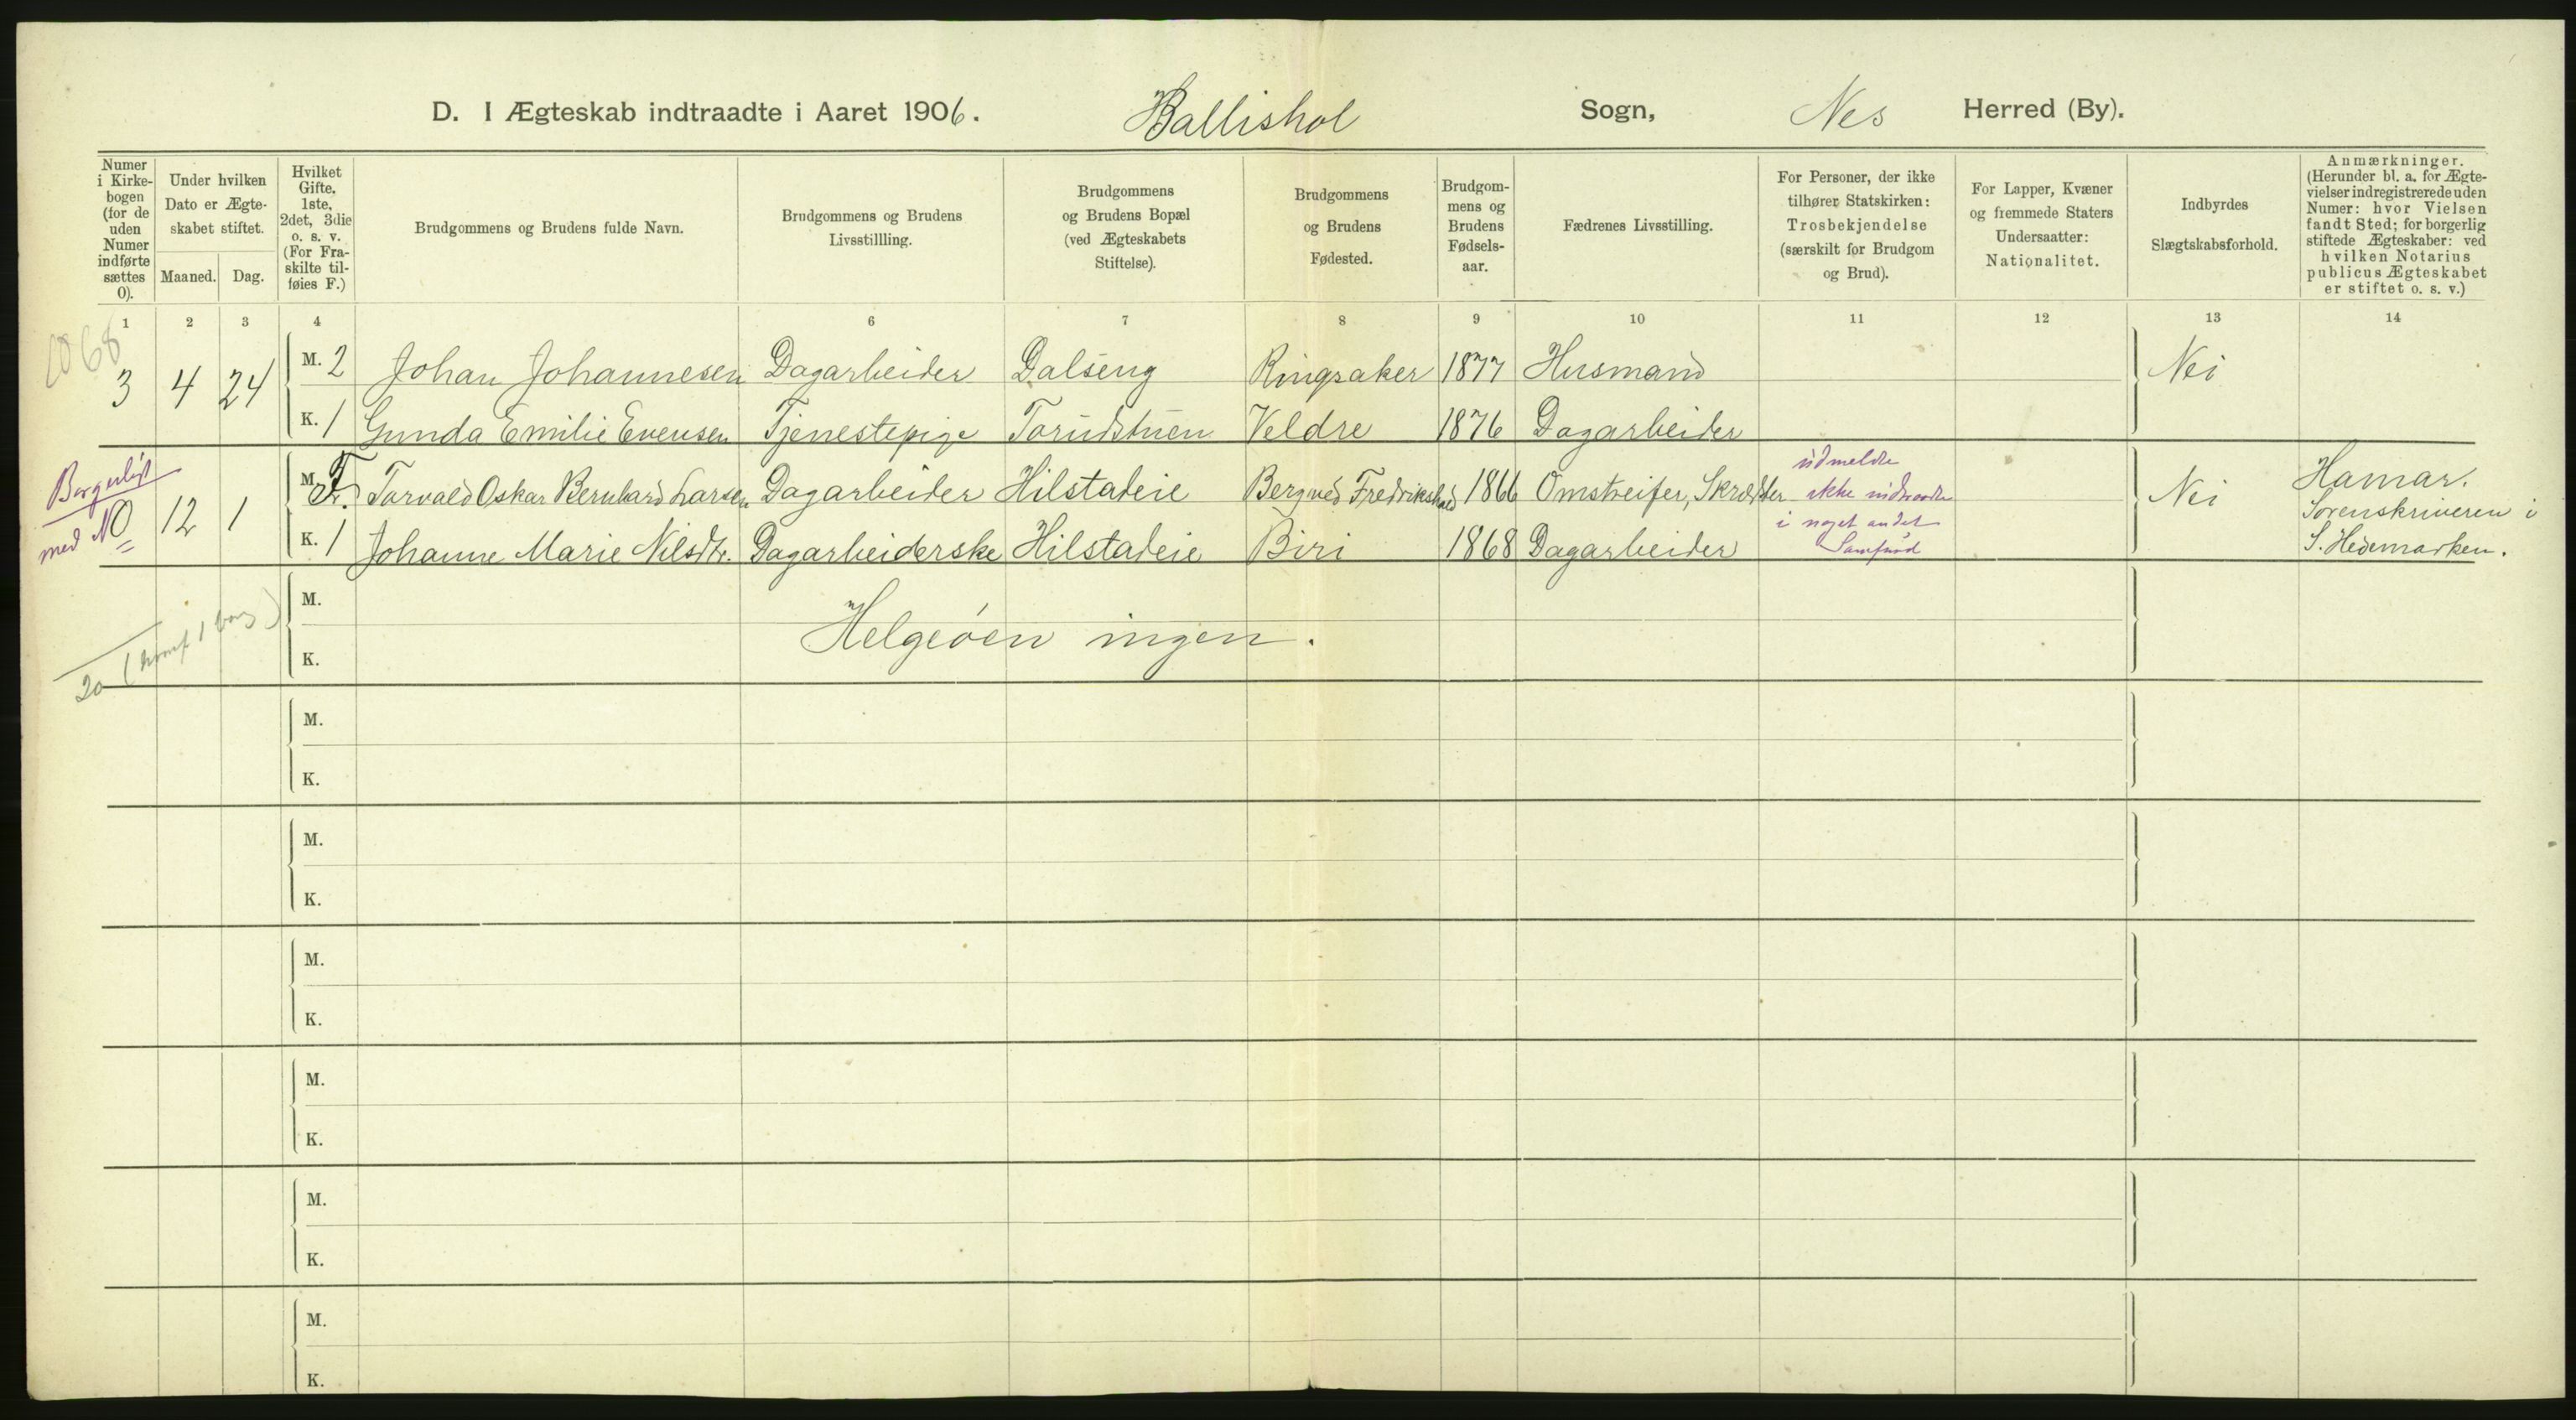 D. I Ægteskab indtraadte i Aaret 1906. Ballishol Sogn, Nes Herred (By).
Numer i Kirke-bogen (for de uden Numer indførte sættes 0).
Under hvilken Dato er Ægte-skabet stiftet.
Maaned. Dag.
Hvilket Gifte. 1ste, 2det, 3die o. s. v. (For Fra-skilte til-føies F.)
Brudgommens og Brudens fulde Navn.
Brudgommens og Brudens Livsstillling.
Brudgommens og Brudens Bopæl (ved Ægteskabets Stiftelse).
Brudgommens og Brudens Fødested.
Brudgom-mens og Brudens Fødsels-aar.
Fædrenes Livsstilling.
For Personer, der ikke tilhører Statskirken: Trosbekjendelse (særskilt for Brudgom og Brud).
For Lapper, Kvæner og fremmede Staters Undersaatter: Nationalitet.
Indbyrdes Slægtskabsforhold.
Anmærkninger. (Herunder bl. a. for Ægte-vielser indregistrerede uden Numer: hvor Vielsen fandt Sted; for borgerlig stiftede Ægteskaber: ved hvilken Notarius publicus Ægteskabet er stiftet o. s. v.)
1 2 3 4 6 7 8 9 10 11 12 13 14
1068
3 4 24 M. 2 Johan Johannesen Dagarbeider Dalseng Ringsaker 1877 Husmand Nei
K. 1 Gunda Emilie Evensen Tjenestepige Torudstuen Veldre 1876 Dagarbeider
Borgerligt
med N 0 12 1 M. F. Torvald Oskar Bernhard Larsen Dagarbeider Hilstadeie Berg ved Fredrikshald 1866 Omstreifer, Skrædder
udmeldte
ikke indtraadte
i noget andet
Samfund
Nei
Hamar.
Sorenskriveren i
S. Hedemarken.
K. 1 Johanne Marie Nilsdtr. Dagarbeiderske Hilstadeie Biri 1868 Dagarbeider
M.
Helgeøen ingen.
K.
20
M.
K.
M.
K.
M.
K.
M.
K.
M.
K.
M.
K.